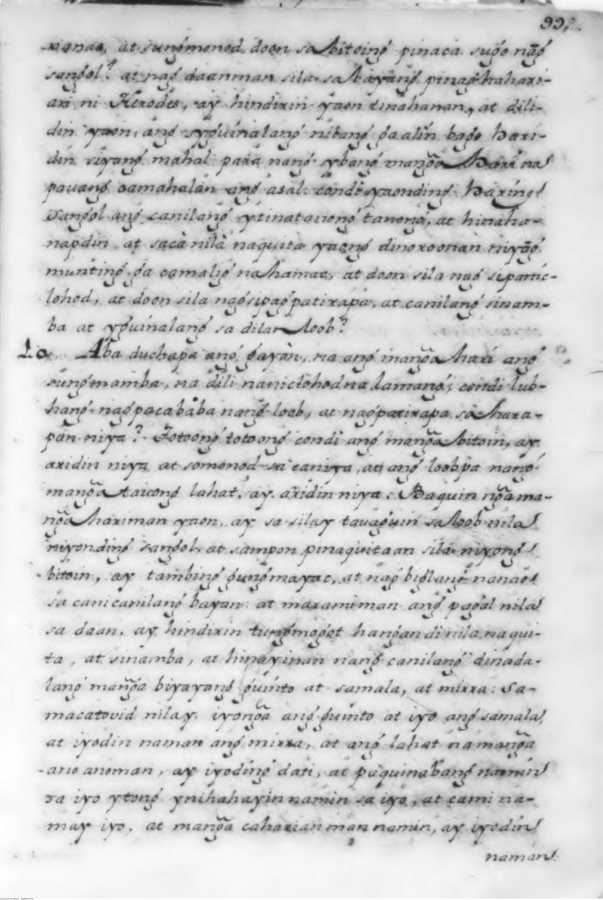 99.
nanao, at sungmonod doon sa bitoing pinaca sugo nãg
sangol? at nag daanman sila sa bayang pinag hahari-
an ni Herodes, ay hindirin yaon tinahanan, at dili-
din yaon, ang yguinalang nitang gaalin bago hari-
din siyang mahal: para nang ybang mangã Hari na
pauang camahalan ang asal: condi yaonding Haring
sangol ang canilang ytinatanong tanong, at hinaha-
nap din, at saca nila naquita yaong dinoroonan niyãg
munting ga camalig na hamac, at doon sila nag sipanic-
lohod, at doon sila nagsipagpatirapa, at canilang sinam-
ba at yguinalang sa dilan loob?
10 Aba duchapa ang gayan, na ang mangã hari ang
sungmamba, na dili naniclohod na lamang; condi lub-
hang nagpacababa nang loob, at nagpatirapa sa hara-
pan niya? Totoong totoong condi ang mangã bitoin, ay
aridin niya at somonod sa caniya, at ang loobpa nang
mangã tauong lahat, ay aridin niya: Baquin ngã ma-
ngã hariman yaon, ay sa silay tauaguin sa loob nila
niyonding sangol, at sampon pinaquitaan sila niyong
bitoin, ay tambing gungmayac, at nag biglang nanao
sa canicanilang bayan: at maramiman ang pagal nila
sa daan, ay hindirin tungmogot hangan di nila naqui-
ta, at sinamba, at hinayinan nang canilang dinada-
lang mangã biyayang guinto at samala, at mirra: Sa-
macatovid nilay, iyongã ang guinto at iyo ang samala,
at iyodin naman ang mirra, at ang lahat na mangã
ano anoman, ay iyoding dati, at paquinabang namin
sa iyo ytong ynihahayin namin sa iyo, at cami na-
may iyo, at mangã caharian man namin, ay iyodin
naman